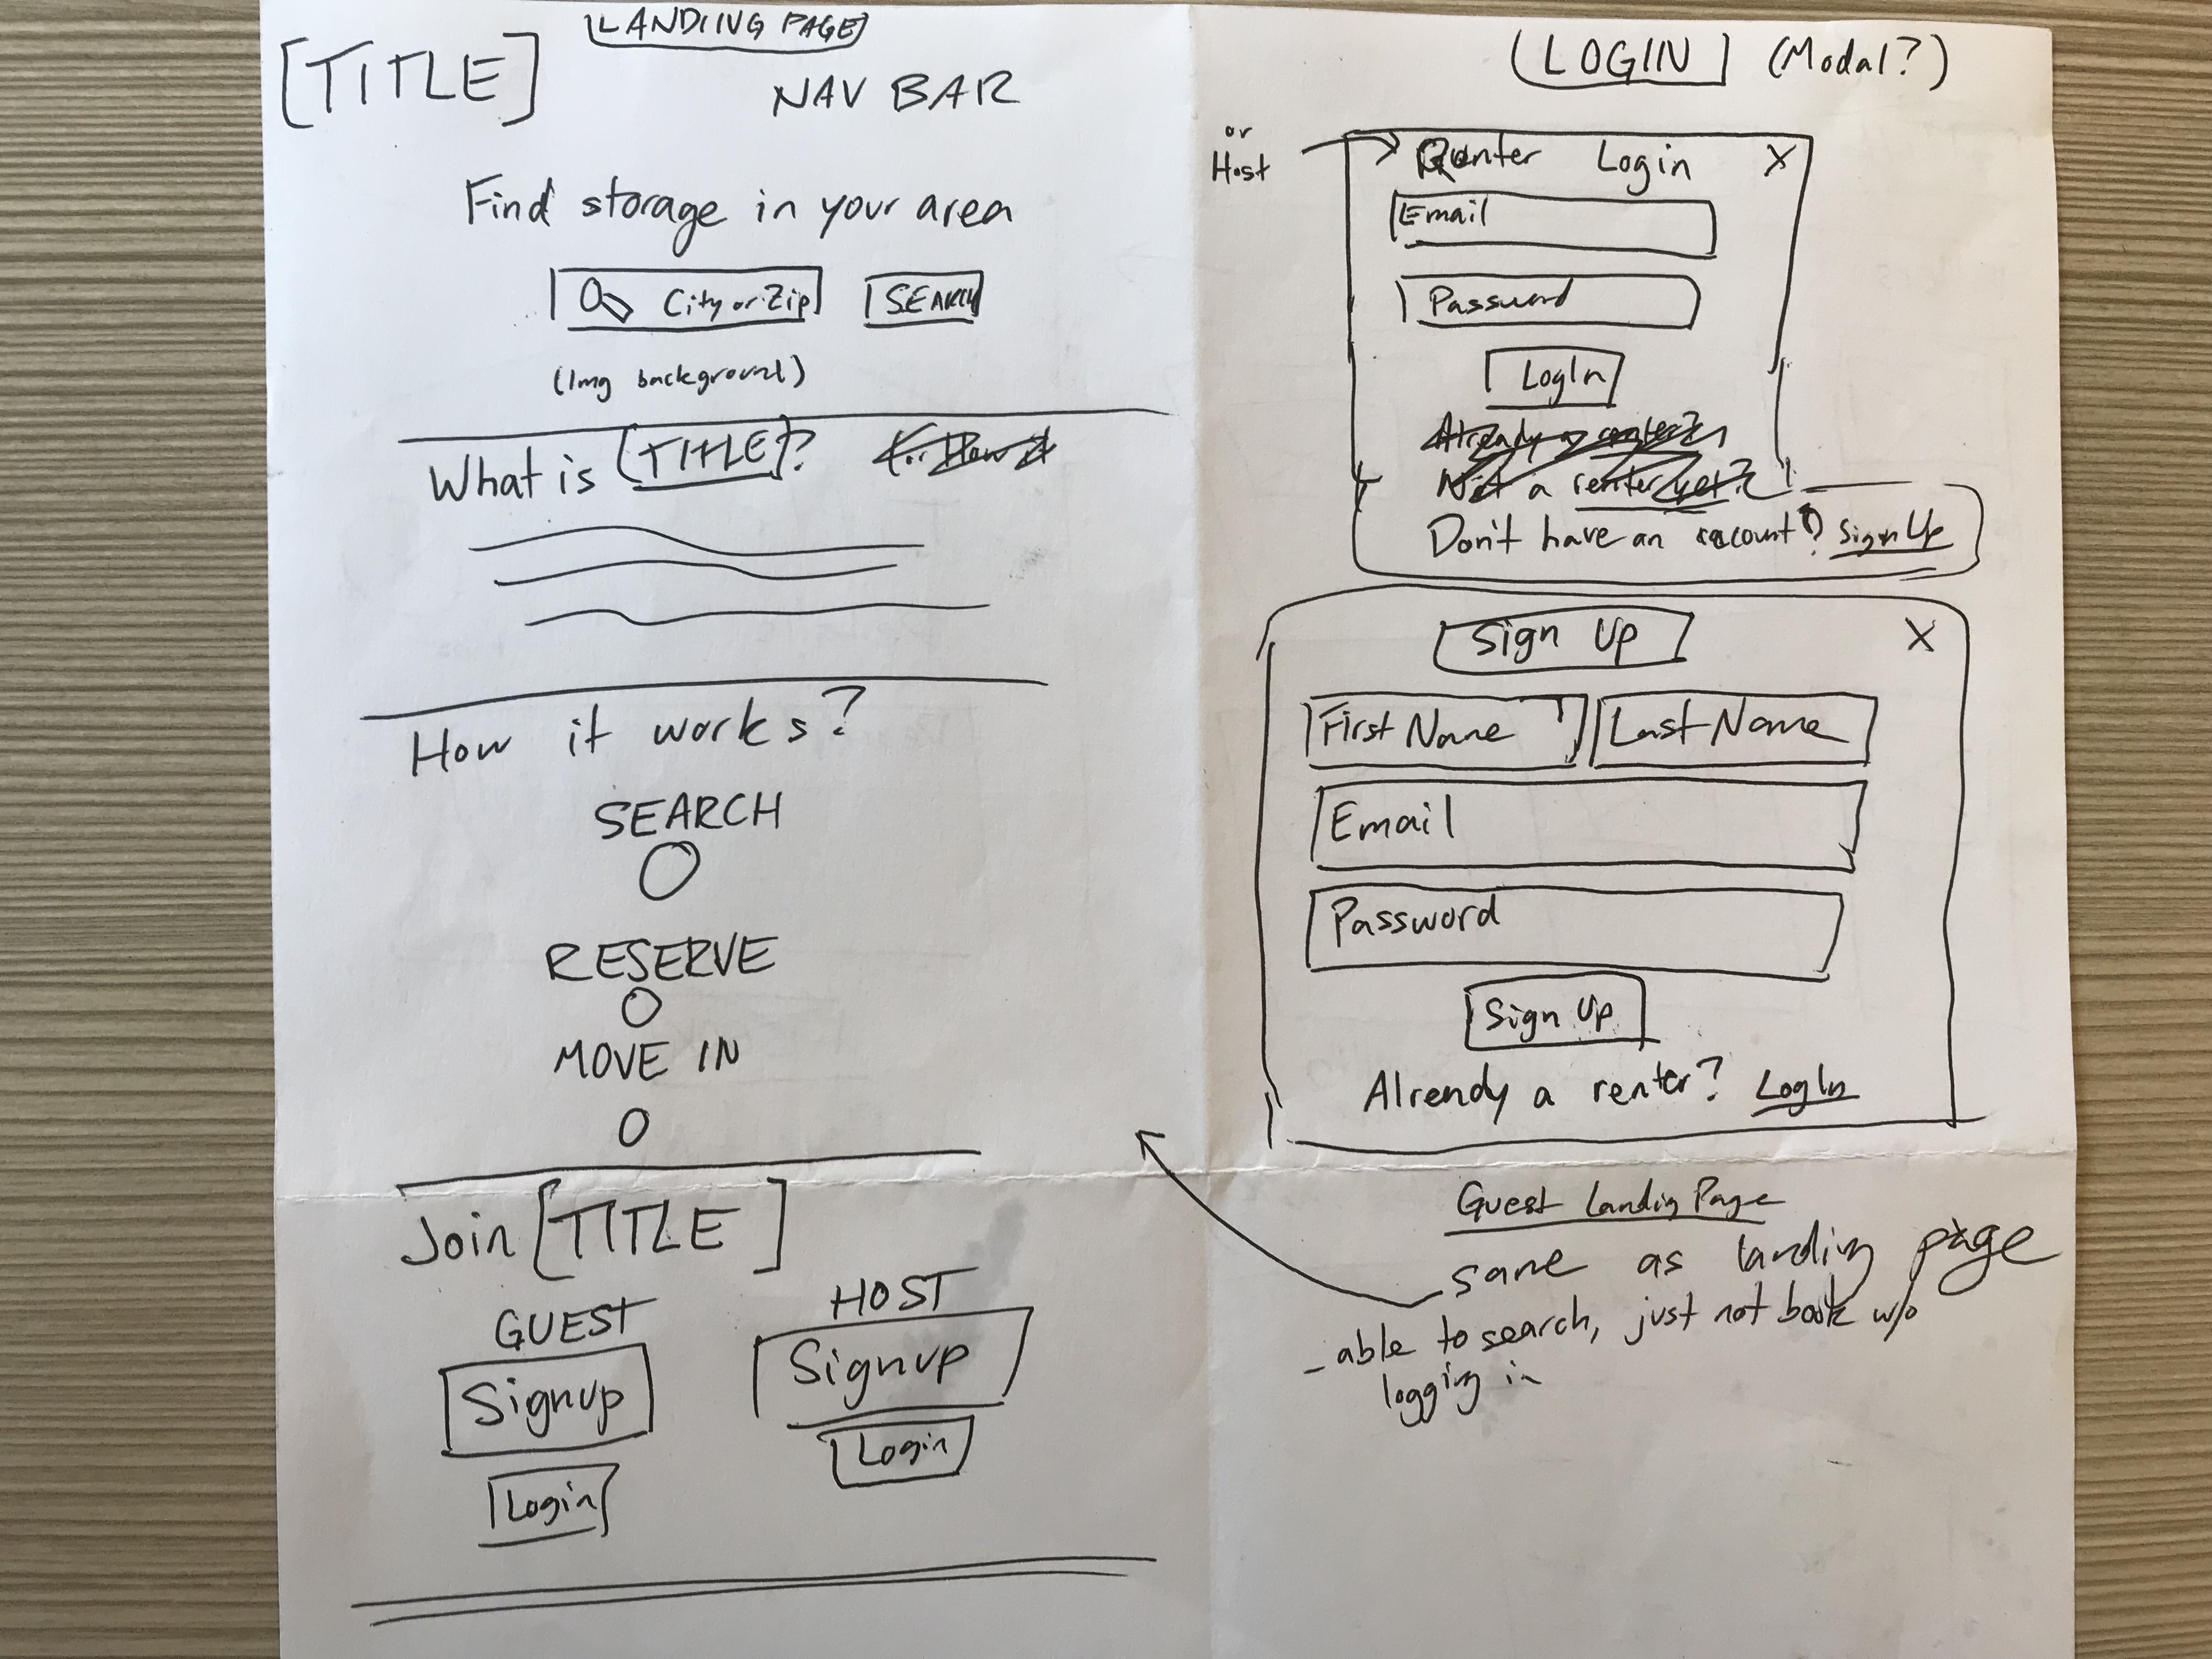 [LANDING PAGE]
[TITLE]
NAV BAR
Find storage in your area
City or Zip
SEARCH
(Img background)
What is [TITLE]?
How it works?
SEARCH
RESERVE
MOVE IN
Join [TITLE]
GUEST
Signup
Login
HOST
Signup
Login
[LOGIN] (Modal?)
or
Host
Renter Login X
Email
Password
LogIn
Already a renter?
Not a renter yet?
Don't have an account? Sign Up
Sign Up X
First Name Last Name
Email
Password
Sign Up
Already a renter? LogIn
Guest Landing Page
same as landing page
- able to search, just not book w/o
logging in